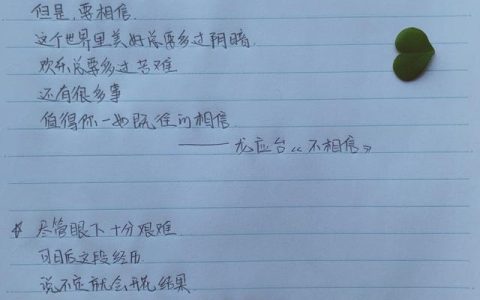 但是,要相信
这个世界里美好总要多过阴暗
欢乐总要多过苦难
还有很多事
值得你一如既往的相信
——龙应台《不相信》
☆ 尽管眼下十分艰难
可日后这段经历
说不定就会开花结果